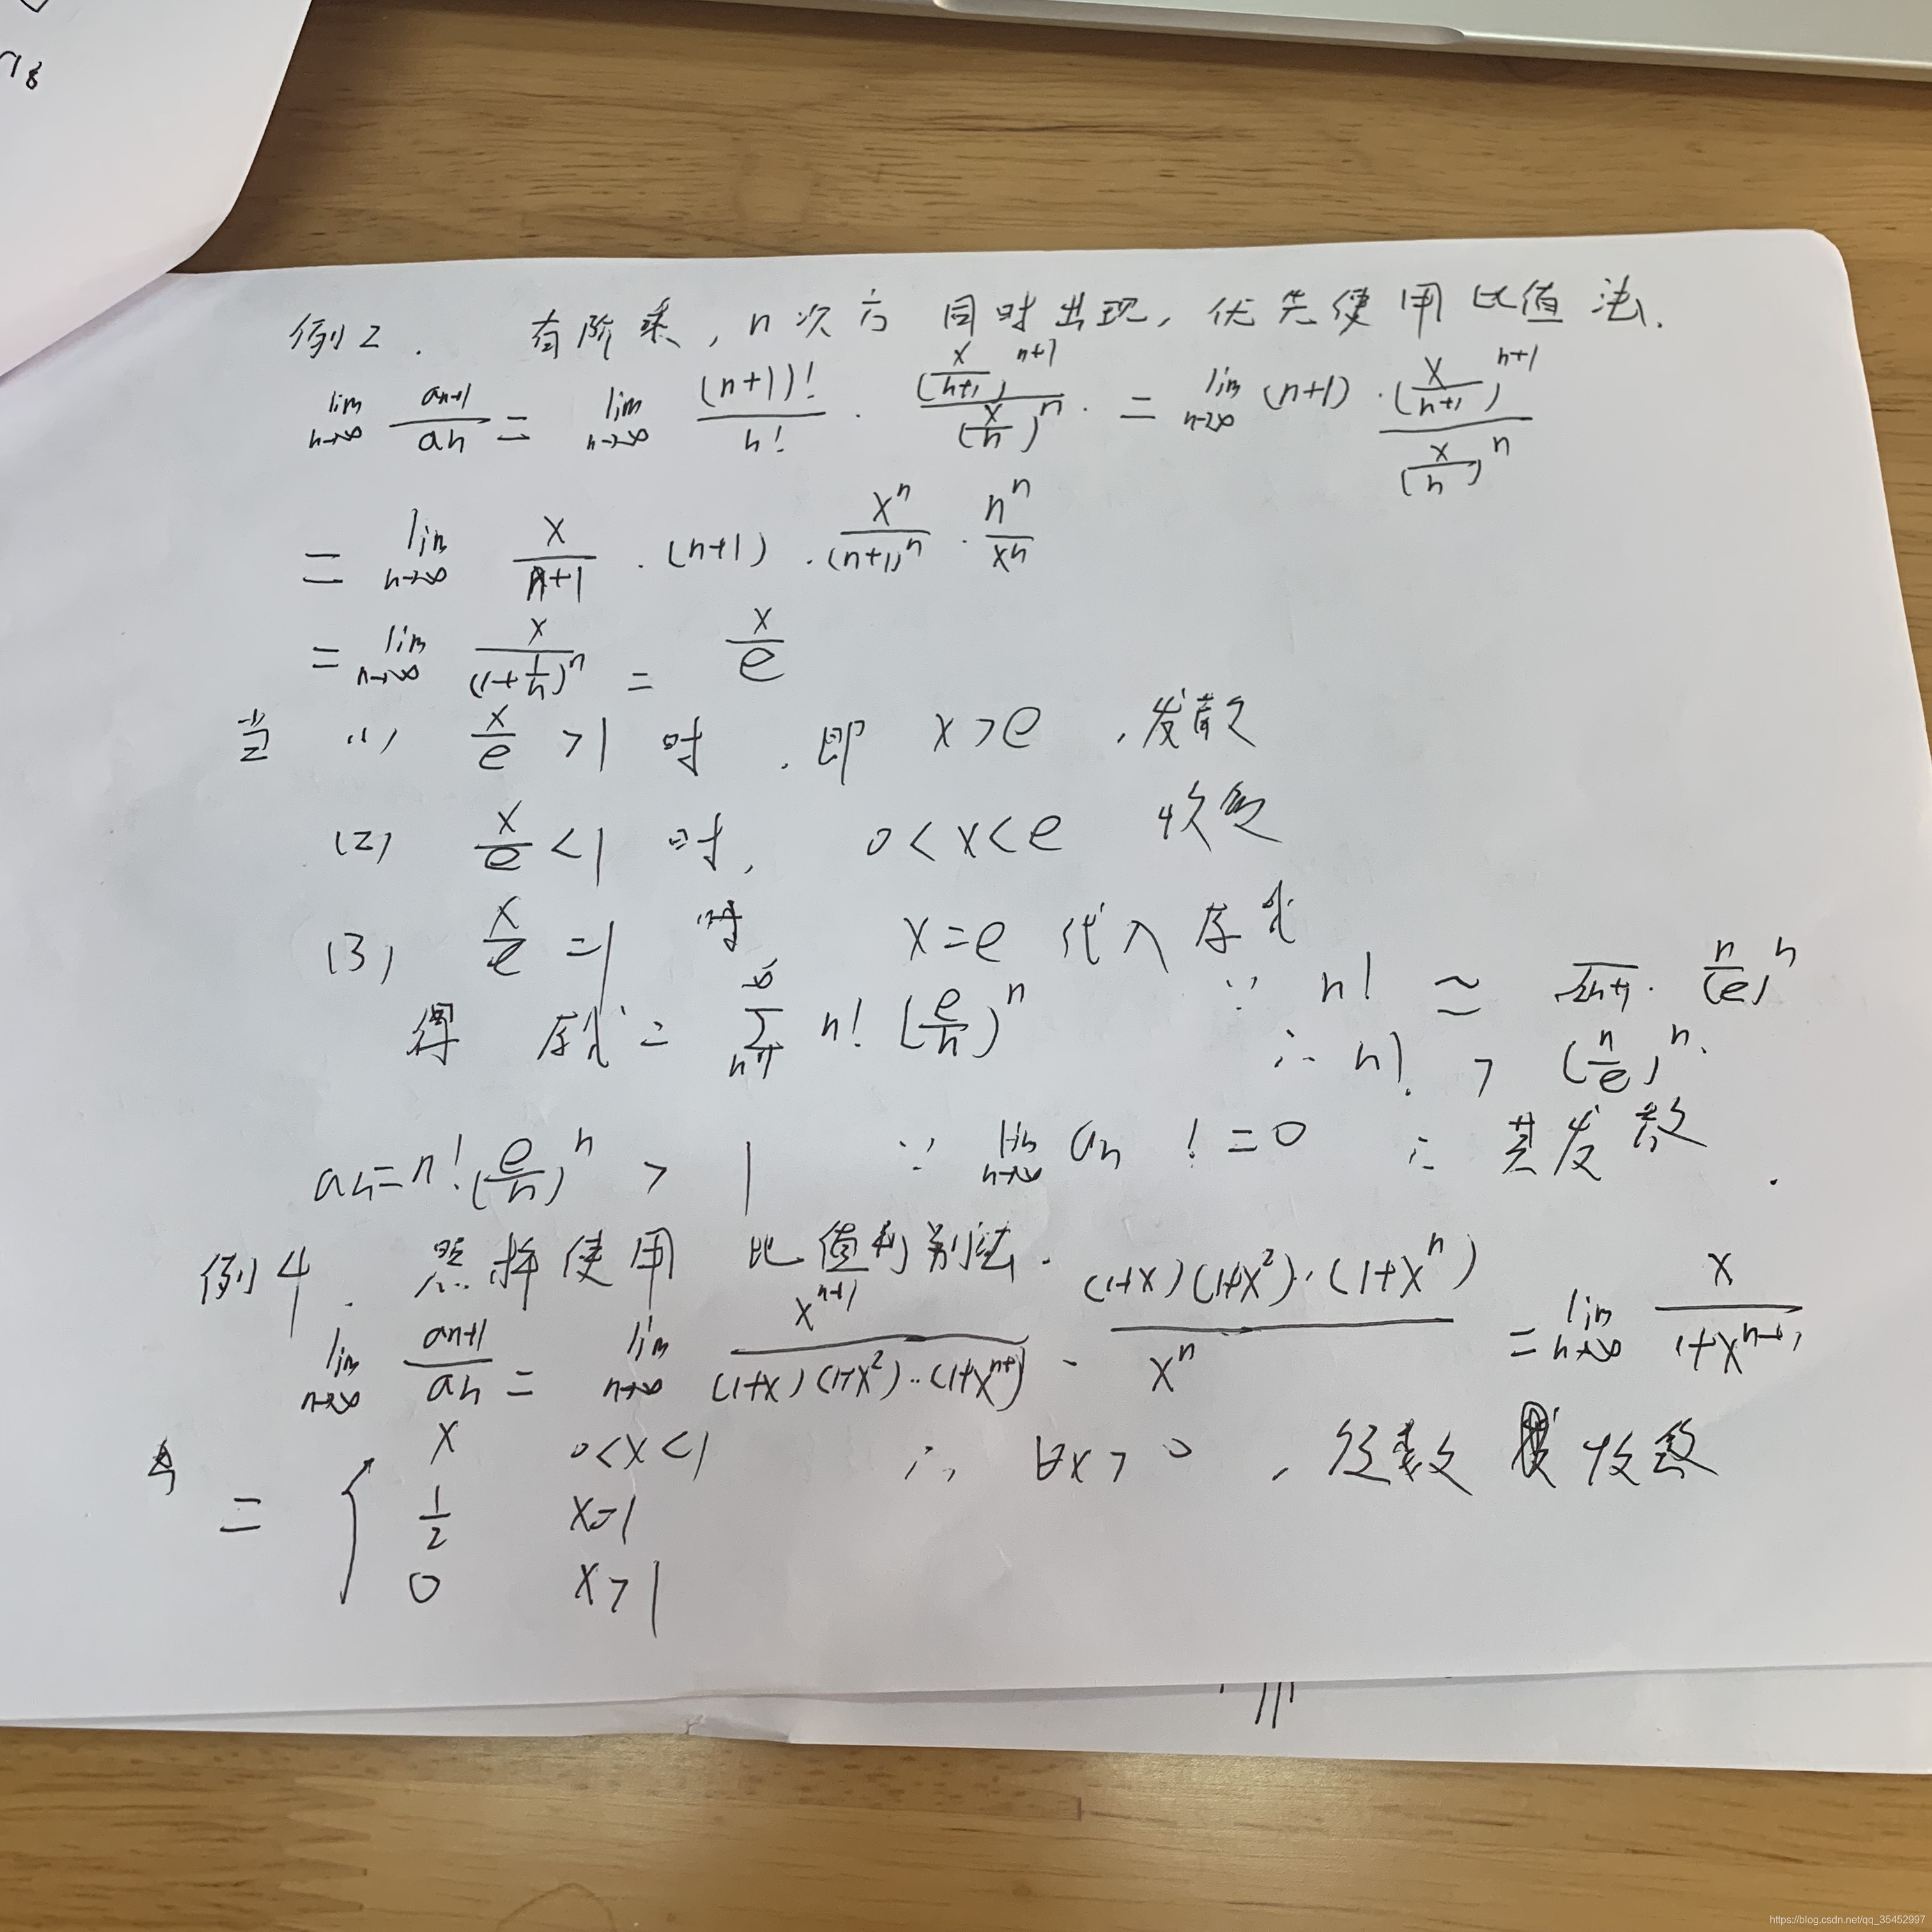 例2. 有阶乘, n次方同时出现, 优先使用比值法.
lim n→∞ an+1/an = lim n→∞ (n+1)!/n! · (x/(n+1))^(n+1)/(x/n)^n · = lim n→∞ (n+1) · (x/(n+1))^(n+1)/(x/n)^n
= lim n→∞ x/(n+1) · (n+1) · x^n/(n+1)^n · n^n/x^n
= lim n→∞ x/(1+1/n)^n = x/e
当 (1) x/e >1 时, 即 x>e, 发散
(2) x/e <1 时, 0<x<e 收敛
(3) x/e =1 时 x=e 代入原式
得 原式 = ∞∑n=1 n! (e/n)^n ∵ n! ≈ · (n/e)^n
∴ n! > (n/e)^n.
an=n!(e/n)^n > 1 ∵ lim n→∞ an != 0 ∴ 其发散.
例4. 使用比值判别法.
lim n→∞ an+1/an = lim n→∞ x^(n+1)/((1+x)(1+x^2)··(1+x^(n+1))) · (1+x)(1+x^2)··(1+x^n)/x^n = lim n→∞ x/(1+x^(n+1))
= { x 0<x<1 ∴ ∀x>0, 级数收敛
1/2 x=1
0 x>1
https://blog.csdn.net/qq_35452997